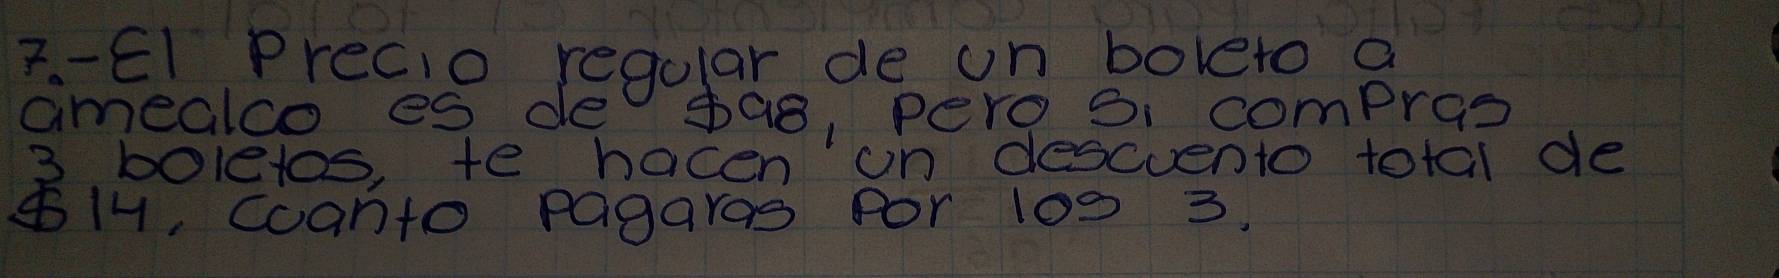 7.-El Precio regular de un boleto a
amealco es de $98, Pero si comPras
3 boletos, te hacen un descuento total de
$14, Cuanto Pagaras Por los 3.